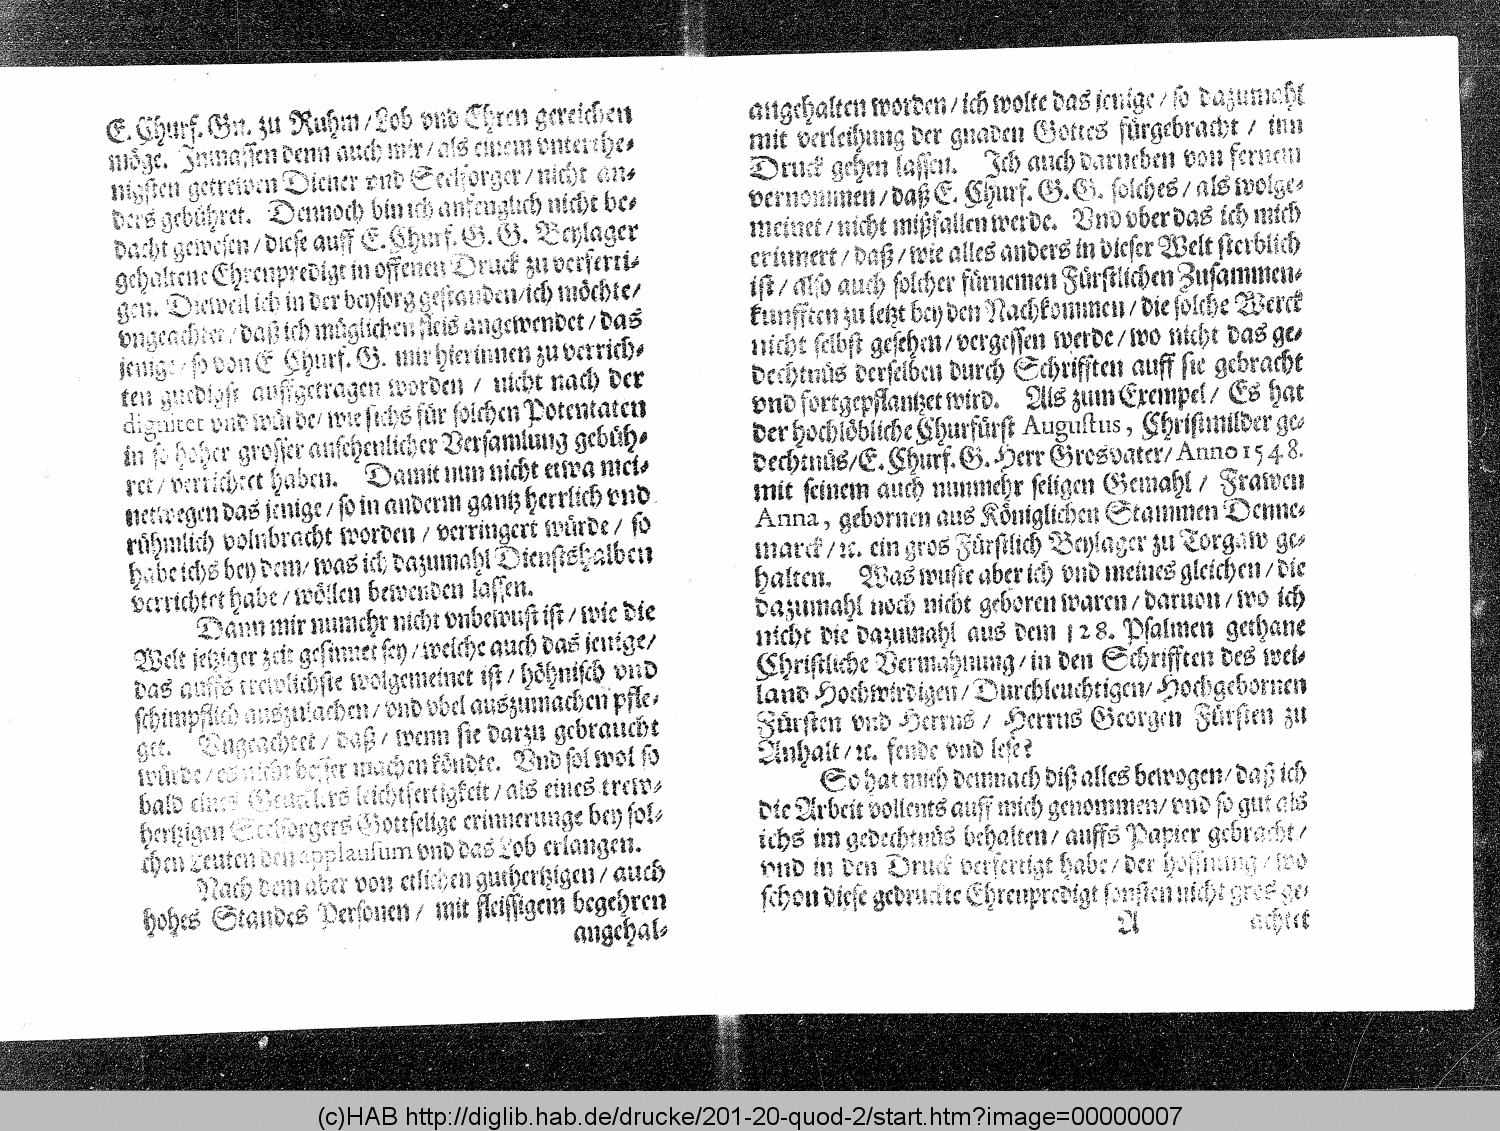 E. Churf. Gn. zu Ruhm / Lob vnd Ehren gereichen
möge. Inmassen denn auch mir / als einem vnterthe⸗
nigsten getrewen Diener vnd Seelsorger / nicht an⸗
ders gebühret. Dennoch bin ich anfenglich nicht be⸗
dacht gewesen / diese auff E. Churf. G. G. Beylager
gehaltene Ehrenpredigt in offenen Druck zu verferti⸗
gen. Dieweil ich in der beysorg gestanden / ich möchte /
vngeachtet / daß ich müglichen fleis angewendet / das
jenige / so von E Churf. G. mir hierinnen zu verrich⸗
ten gnedigst auffgetragen worden / nicht nach der
dignitet vnd würde / wie sichs für solchen Potentaten
in so hoher grosser ansehenlicher Versamlung gebüh⸗
ret / verrichtet haben. Damit nun nicht etwa mei⸗
netwegen das jenige / so in anderm gantz herrlich vnd
rühmlich volnbracht worden / verringert würde / so
habe ichs bey dem / was ich dazumahl Diensthalben
verrichtet habe / wöllen bewenden lassen.
Dann mir numehr nicht vnbewust ist / wie die
Welt jetziger zeit gesinnet sey / welche auch das jenige /
das auffs trewlichste wolgemeinet ist / höhnisch vnd
schimpflich auszulachen / vnd vbel auszumachen pfle⸗
get. Vngeachtet / daß / wenn sie darzu gebraucht
würde / es nicht besser machen köndte. Vnd sol wol so
bald eines leichtfertigkeit / als eines trew⸗
hertzigen Seelsorgers Gottselige erinnerunge bey sol⸗
chen Leuten den applausum vnd das Lob erlangen.
Nach dem aber von etlichen guthertzigen / auch
hohes Standes Personen / mit fleissigem begehren
angehal⸗
angehalten worden / ich wolte das jenige / so dazumahl
mit verleihung der gnaden Gottes fürgebracht / inn
Druck gehen lassen. Ich auch darneben von fernem
vernommen / daß E. Churf. G. G. solches / als wolge⸗
meinet / nicht mißfallen werde. Vnd vber das ich mich
erinnert / daß / wie alles anders in dieser Welt sterblich
ist / also auch solcher fürnemen Fürstlichen Zusammen⸗
kunfften zu letzt bey den Nachkommen / die solche Werck
nicht selbst gesehen / vergessen werde / wo nicht das ge⸗
dechtnüs derselben durch Schrifften auff sie gebracht
vnd fortgepflantzet wird. Als zum Exempel / Es hat
der hochlöbliche Churfürst Augustus, Christmilder ge⸗
dechtnüs / E. Churf. G. Herr Grosvater / Anno 1548.
mit seinem auch nunmehr seligen Gemahl / Frawen
Anna, gebornen aus Königlichen Stammen Denne⸗
marck / ꝛc. ein gros Fürstlich Beylager zu Torgaw ge⸗
halten. Was wuste aber ich vnd meines gleichen / die
dazumahl noch nicht geboren waren / daruon / wo ich
nicht die dazumahl aus dem 128. Psalmen gethane
Christliche Vermahnung / in den Schrifften des wei⸗
land Hochwirdigen / Durchleuchtigen / Hochgebornen
Fürsten vnd Herrns / Herrns Georgen Fürsten zu
Anhalt / ꝛc. fende vnd lese?
So hat mich demnach diß alles bewogen / daß ich
die Arbeit vollents auff mich genommen / vnd so gut als
ichs im gedechtnüs behalten / auffs Papier gebracht /
vnd in den Druck verfertigt habe / der hoffnung / wo
schon diese gedruckte Ehrenpredigt sonsten nicht gros ge⸗
A achtet
(c)HAB http://diglib.hab.de/drucke/201-20-quod-2/start.htm?image=00000007